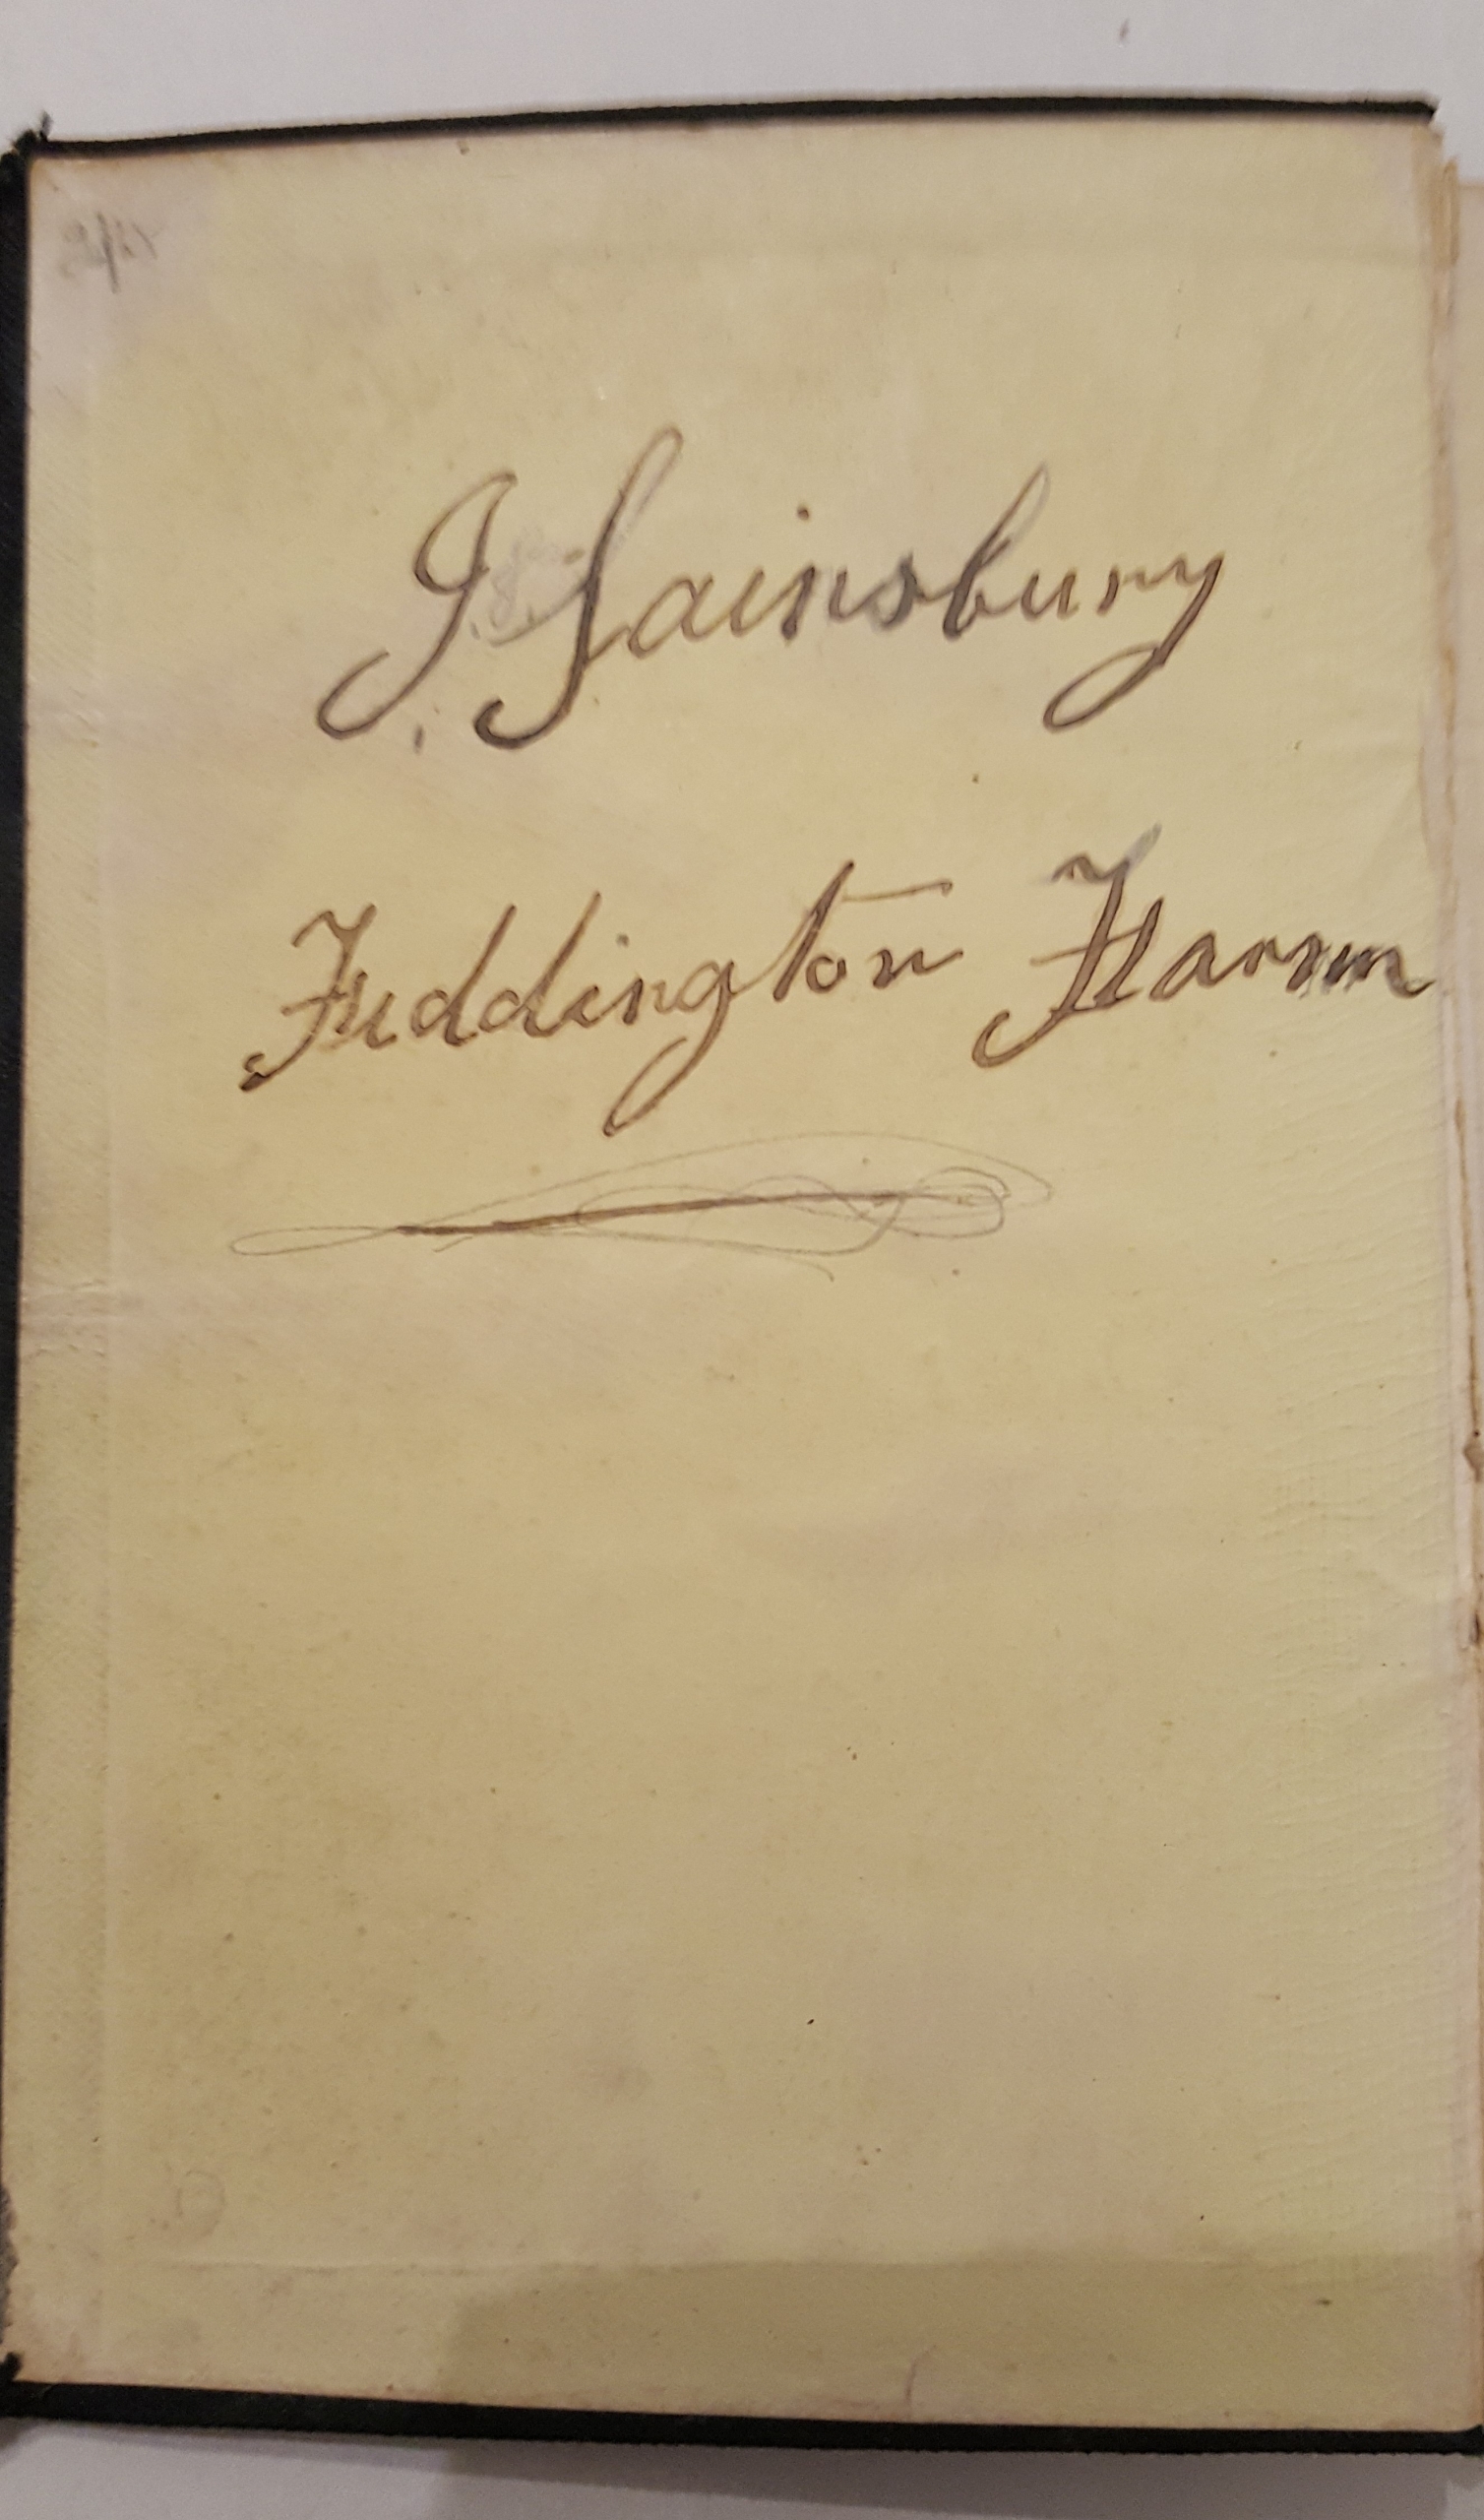 J Sainsbury
Fiddington Farm